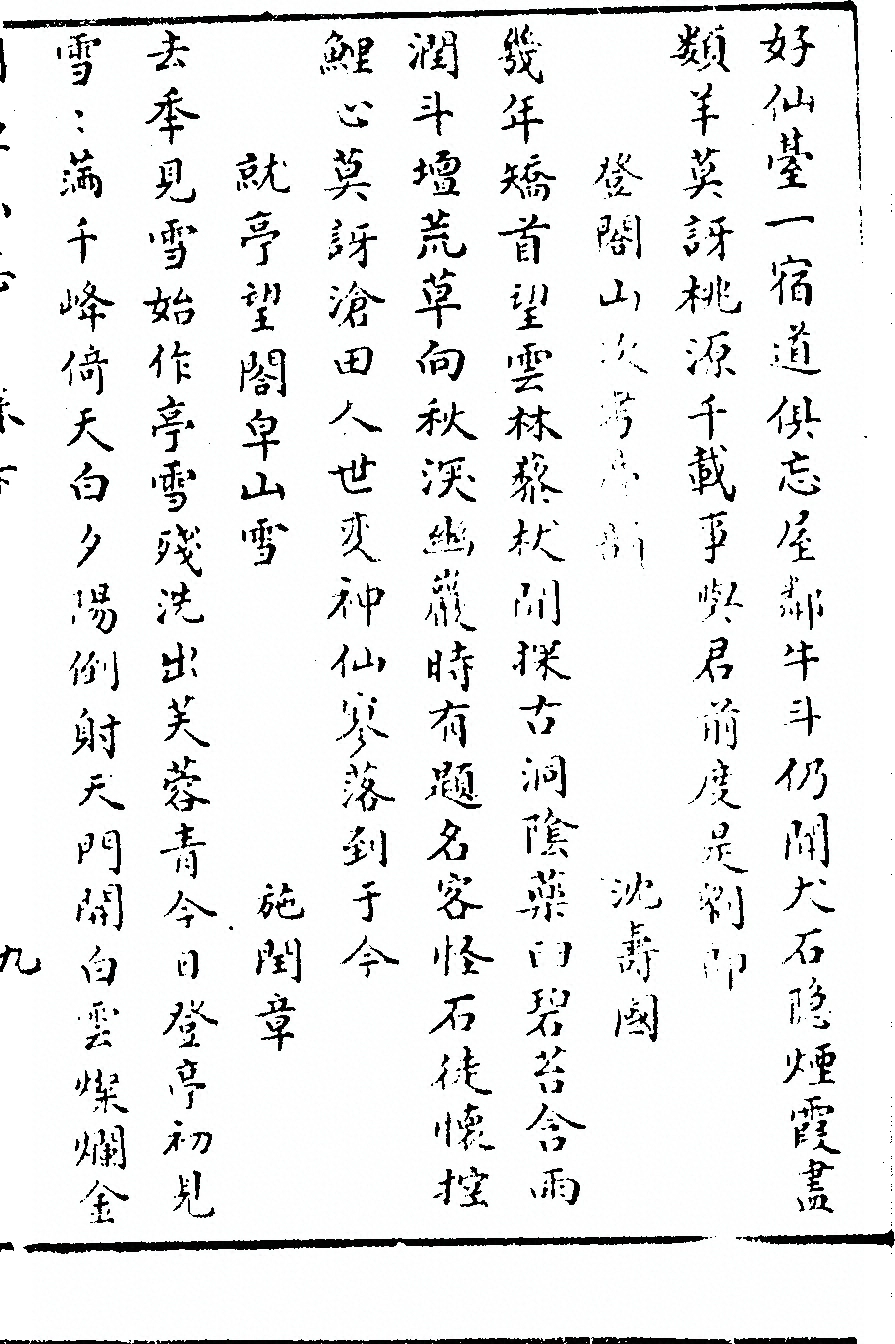 好仙臺一宿道俱忘屋鄰牛斗仍聞犬石隐煙霞盡
類羊莫訝桃源千載事與君前度是劉郎
登閣山次考序韻
沈壽國
幾年矯首望雲林藜杖閒探古洞陰藥臼碧苔含雨
潤斗壇荒草向秋深幽巖時有題名客怪石徒懷控
鯉心莫訝滄田人世变神仙寥落到于今
就亭望閣皁山雪
施閏章
去年見雪始作亭雪殘洗出芙蓉青今日登亭初見
雪〻满千峰倚天白夕陽倒射天門開白雲燦爛金
九